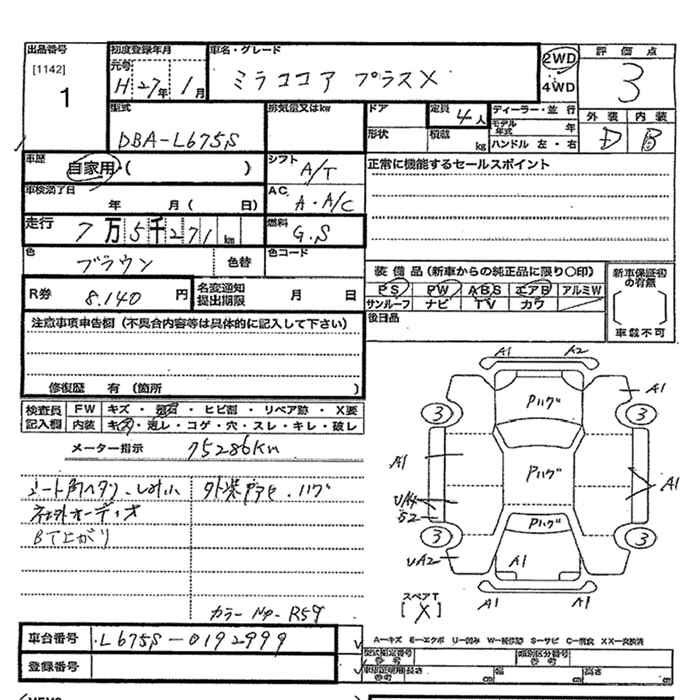 出品番号 初度登録年月 車名・グレード 2WD 評価点
[1142] 元号 4WD
1 H 27年 1月 ミラココア プラスX 3
型式 排気量又はkw ドア 定員 4人 ディーラー・並行 外装 内装
DBA-L675S 形状 積載 kg モデル年式 年 D B
ハンドル 左・右
車歴 自家用・( ) シフト A/T 正常に機能するセールスポイント
車検満了日 年 月( 日) AC A・A/C
走行 7万5千271km 燃料 G.S
色 ブラウン 色替 色コード
装備品(新車からの純正品に限り〇印) 新車保証初の有無
R券 8,140円 名変通知提出期限 月 日 PS PW ABS エアB アルミW
サンルーフ ナビ TV カワ
注意事項申告欄(不具合内容等は具体的に記入して下さい) 後日品 車載不可
修復歴 有(箇所 )
検査員 FW キズ・飛石・ヒビ割・リペア跡・X要
記入欄 内装 キズ・汚レ・コゲ・穴・スレ・キレ・破レ
メーター指示 75286Km
シート角ヘタリ・シミ小 外装
社外オーディオ
BT上がり
カラーNo- R59
A1 A2
A1
Pハゲ
3 3
A1 Pハゲ A1
S2 Pハゲ
3 3
A1
A1 A1
スペアT
[X]
車台番号 L675S-0192999 A―キズ E―エクボ U―凹み W―補修跡 S―サビ C―腐食 XX―交換済
型式指定番号 参考 類別区分番号 参考
登録番号 参考 長さ 幅 高さ
MEMO